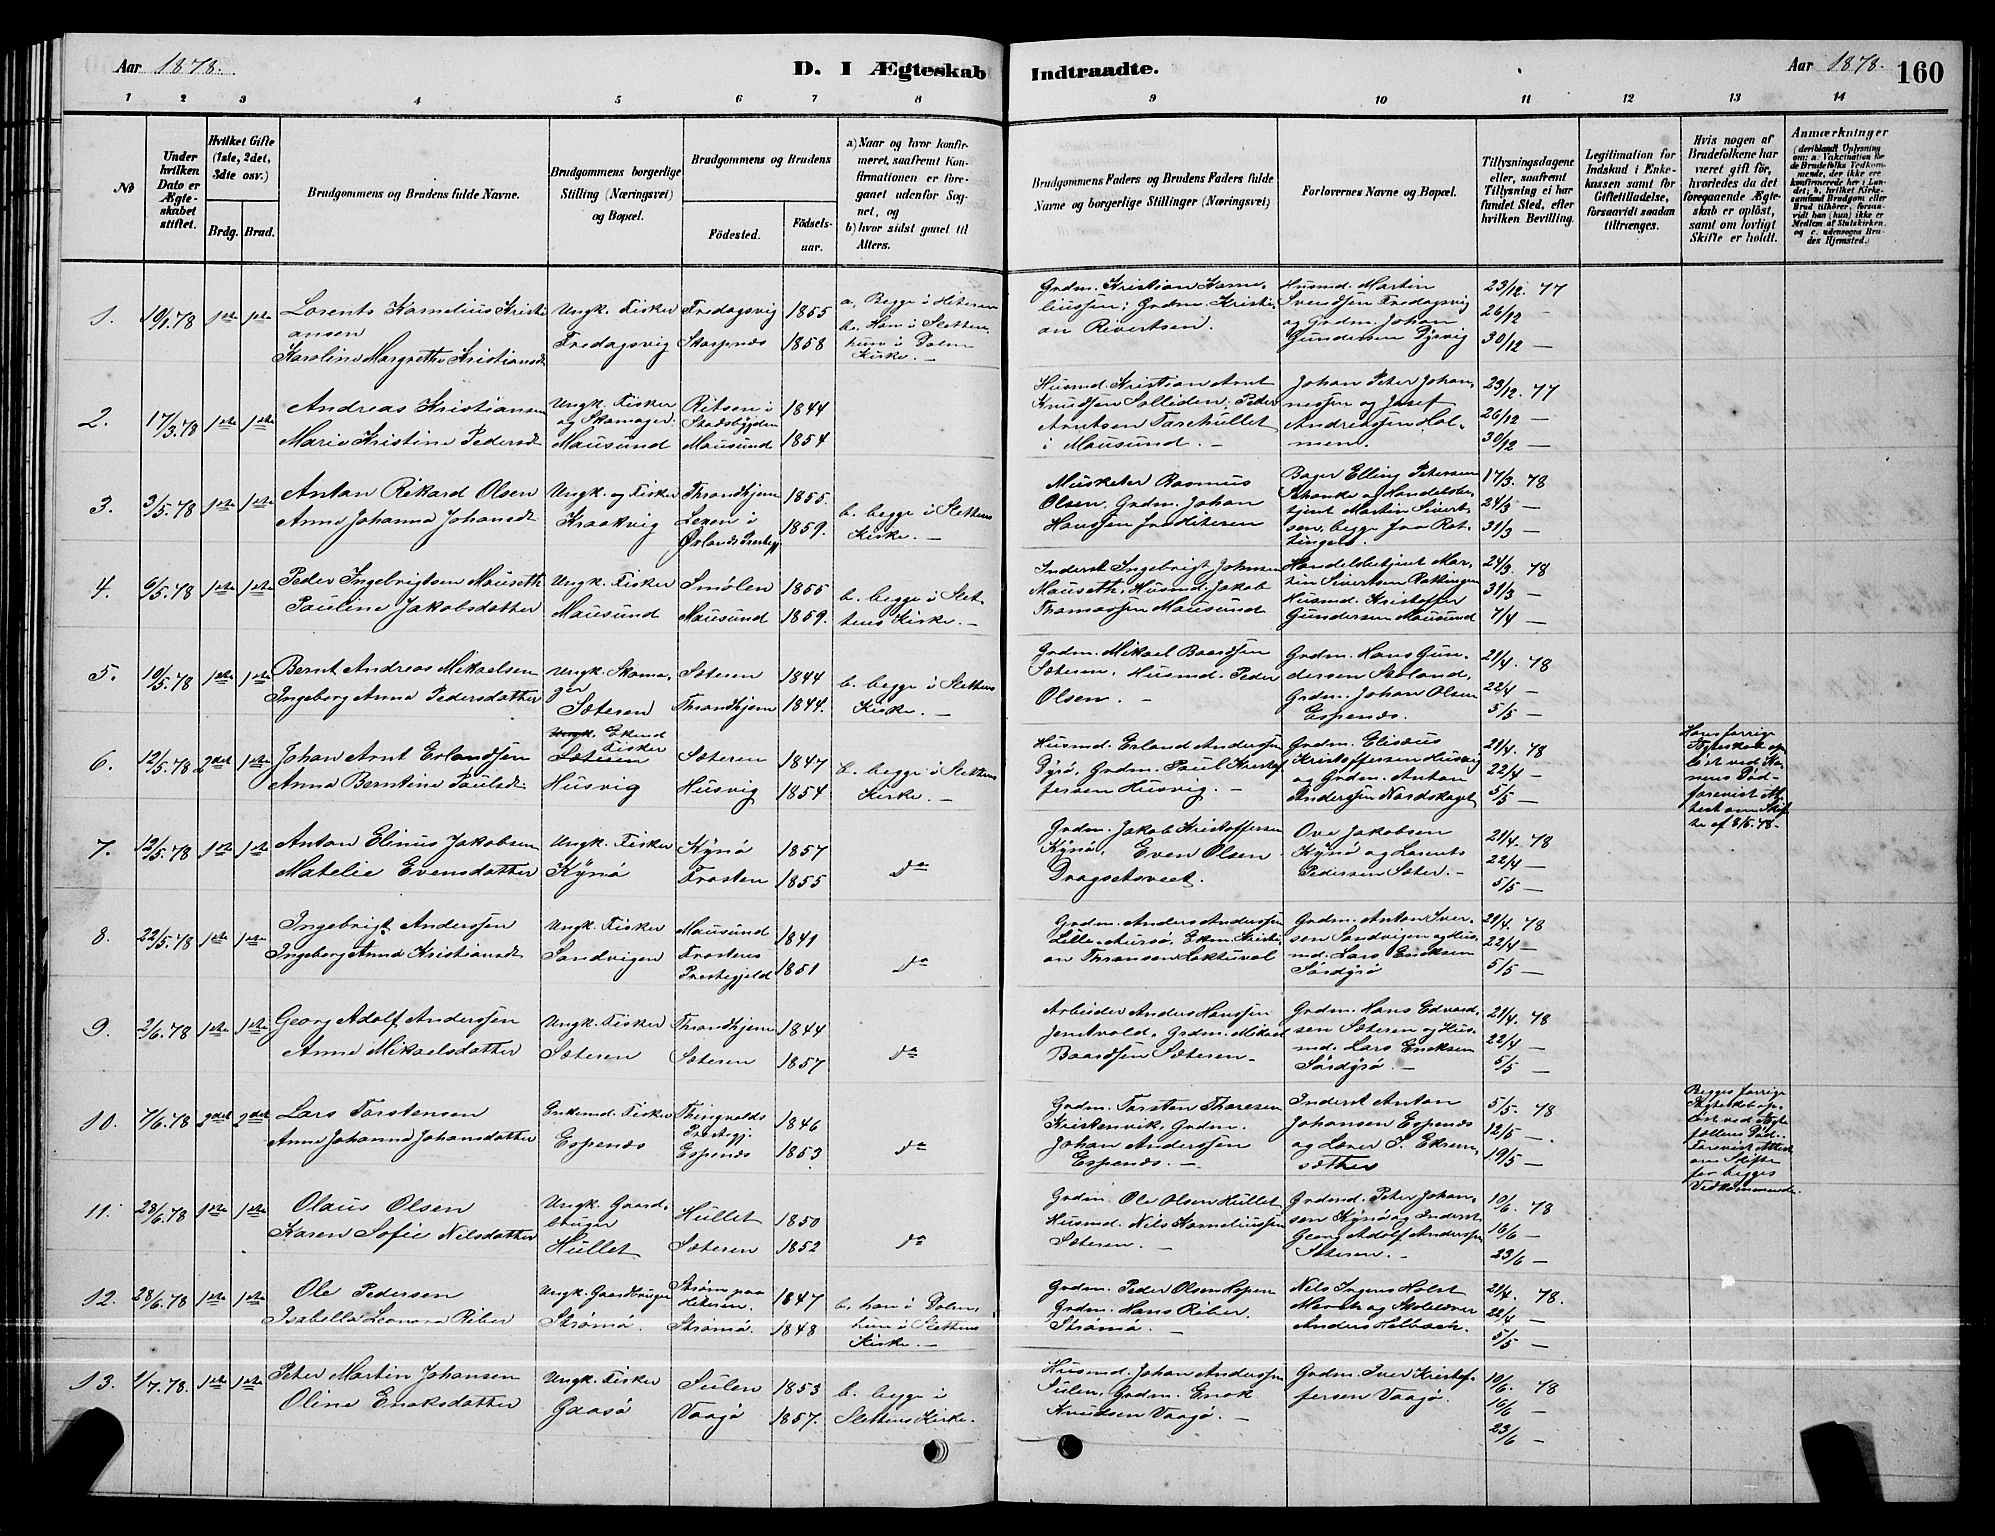 Aar 1878.
D. I Ægteskab Indtraadte.
Aar 1878.
160
1 2 3 4 5 6 7 8 9 10 11 12 13 14
№
Under hvilken Dato er Ægteskabet stiftet.
Hvilket Gifte (1ste, 2det, 3die osv.)
Brdg. Brud.
Brudgommens og Brudens fulde Navne.
Brudgommens borgerlige Stilling (Næringsvei) og Bopæl.
Brudgommens og Brudens
Födested.
Födselsaar.
a) Naar og hvor konfirmeret, saafremt Konfirmationen er foregaaet udenfor Sognet, og
b) hvor sidst gaaet til Alters.
Brudgommens Faders og Brudens Faders fulde Navne og borgerlige Stillinger (Næringsvei)
Forlovernes Navne og Bopæl.
Tillysningsdagene eller, saafremt Tillysning ei har fundet Sted, efter hvilken Bevilling.
Legitimation for Indskud i Enkekassen samt for Giftetilladelse, forsaavidt saadan tiltrænges.
Hvis nogen af Brudefolkene har været gift för, hvorledes da det foregaaende Ægteskab er oplöst, samt om lovligt Skifte er holdt.
Anmærkninger
(deriblandt Oplysning om: a. Vakcination for de Brudefolks Vedkommende, der ikke ere konfirmerede her i Landet; b. hvilket Kirkesamfund Brudgom eller Brud tilhörer, forsaavidt han (hun) ikke er Medlem af Statskirken, og c. udensogns Brudes Hjemsted.)
1. 10/1.78 1ste 1ste
Lorents Kornelius Kristiansen
Karoline Margrethe Kristiansdt
Ungk. Fisker
Fredagsvig
Fredagsvig 1855
Skarpnes 1858
a. Begge i Hiteren
b. Han i Slettens, hun i Dolm Kirke.
Grdm. Kristian Korneliussen; Grdm. Kristian Rivertsen.
Husmd. Martin Svendsen Fredagsvig og Grdm. Johan Gundersen Dyrvig
23/12. 77
26/12 —
30/12 —
2. 17/3.78 1ste 1ste
Andreas Kristiansen
Marie Kristine Pedersdt
Ungk. Fisker og Skomager.
Mausund
Ritsen i Stadsbygden 1844
Mausund 1854
Husmd. Kristian Arnt Knudsen Solliden, Peder Arntsen Tarehullet i Mausund. —
Johan Peter Johannessen og Josef Andreassen Holmen.
23/12. 77
26/12 —
30/12 —
3. 3/5.78 1ste 1ste
Anton Rikard Olsen
Anne Johanna Johansdt
Ungk. og Fisker
Kraakvig
Throndhjem 1855.
Lexen i Ørlands Prestegj 1859.
b. begge i Slettens Kirke. —
Musketer Rasmus Olsen, Grdm. Johan Hansen fra Hiteren
Bager Elling Petersen og Handelsbetjent Martin Sivertsen, begge fra Rottingen.
17/3. 78
24/3 —
31/3 —
4. 6/5.78 1ste 1ste
Peder Ingebrigtsen Mauseth
Pauline Jakobsdatter
Ungk. Fisker
Mausund
Smølen 1855
Mausund 1859.
b. begge i Slettens Kirke. —
Inderst Ingebrigt Johnsen Mauseth, Husmd. Jakob Thomassen Mausund
Handelsbetjent Martin Sivertsen Rottingen Husmd. Kristoffer Gundersen Mausund
24/3. 78
31/3 —
7/4 —
5. 10/5.78 1ste 1ste
Bernt Andreas Mikaelsen
Ingeborg Anna Pedersdatter
Ungk. Skomager
Sæteren
Sæteren 1844
Throndhjem 1844.
b. begge i Slettens Kirke. —
Grdm. Mikael Baardsen Sæteren, Husmd. Peder Olsen. —
Grdm. Hans Gundersen Stoland, Grdm. Johan Olsen Espenæs.
21/4. 78
22/4 —
5/5 —
6. 12/5.78 2det 1ste
Johan Arnt Erlandsen
Anna Berntine Paulsdt
Ungk. Ekmd Fisker
Sæteren
Husvig
Sæteren 1847
Husvig 1854
b. begge i Slettens Kirke. —
Husmd. Erland Anderssen Dyrø, Grdm. Paul Kristoffersen Husvig. —
Grdm. Elisæus Kristoffersen Husvig og Grdm. Anton Anderssen Nordskaget
21/4. 78
22/4 —
5/5 —
Hans forrige Ægteskab opløst ved Konens Død – forevist Attest om Skifte af 8/5.78.
7. 12/5.78 1ste 1ste
Anton Elinus Jakobsen
Matelie Evensdatter
Ungk. Fisker
Kÿnø
Kÿnø 1857
Frosten 1855
do
Grdm. Jakob Kristoffersen Kÿnø, Even Olsen Dragsetsveet.
Ove Jakobsen Kÿnø og Lorents Pedersen Sæter. —
21/4. 78
22/4 —
5/5 —
8. 22/5.78 1ste 1ste
Ingebrigt Anderssen
Ingeborg Anna Kristiansdt
Ungk. Fisker
Sandvigen
Mausund 1841
Frostens Prestegjeld 1851
do
Grdm. Anders Anderssen Lille-Aursø, Ekm. Kristian Thronsen Laktuval
Grdm. Anton Iversen Sandvigen og Husmd. Lars Ericksen Sørdyrø
21/4. 78
22/4 —
5/5 —
9. 2/6.78 1ste 1ste
Georg Adolf Anderssen
Anne Mikaelsdatter
Ungk. Fisker
Sæteren
Throndhjem 1844
Sæteren 1857
do
Arbeider Anders Hanssen Jentvold, Grdm. Mikael Baardsen Sæteren. —
Grdm. Hans Edvardsen Sæteren og Husmd. Lars Ericksen Sørdÿrø. —
21/4. 78
22/4 —
5/5 —
10. 7/6.78 2det 2det
Lars Torstensen
Anne Johanna Johansdatter
Enkemd. Fisker
Espenæs
Thingvolds Prestegj. 1846
Espenæs 1853
do
Grdm. Torsten Thoresen Kristenvik, Grdm. Johan Anderssen Espenæs. —
Inderst Anton Johansen Espenæs og Lærer S. Ekremsæther
5/5. 78
12/5 —
19/5 —
Begges forrige Ægteskab opløst ved Ægtefællens Død. Forevist Attest om Skifte for begges Vedkommende.
11. 28/6.78 1ste 1ste
Olaus Olsen
Karen Sofie Nilsdatter
Ungk. Gaardbruger
Hullet
Hullet 1850
Sæteren 1852
do
Grdm. Ole Olsen Hullet Husmd. Nils Korneliussen Sæteren. —
Grdmd. Peter Johansen Kÿnø og Inderst Georg Adolf Anderssen Sæteren. —
10/6. 78
16/6 —
23/6 —
12. 28/6.78 1ste 1ste
Ole Pedersen
Isabella Leonora Riber
Ungk. Gaardbruger
Strømø.
Strøm paa Hiteren. 1847
Strømø. 1848
b. han i Dolm, hun i Slettens Kirke. —
Grdm. Peder Olsen Hopen Grdm. Hans Riber Strømø. —
Nils Ingens Holst og Skolelærer Anders Helbach.
21/4. 78.
22/4 —
5/5 —
13. 1/7.78. 1ste 1ste
Peter Martin Johansen
Oline Enoksdatter
Ungk. Fisker
Gaasø
Sulen 1853
Vaagø 1857.
b. begge i Slettens Kirke.
Husmd. Johan Anderssen Sulen, Grdm. Enok Knudsen Vaagø. —
Grdm. Iver Kristoffersen Vaagø.
10/6. 78
16/6 —
23/6 —